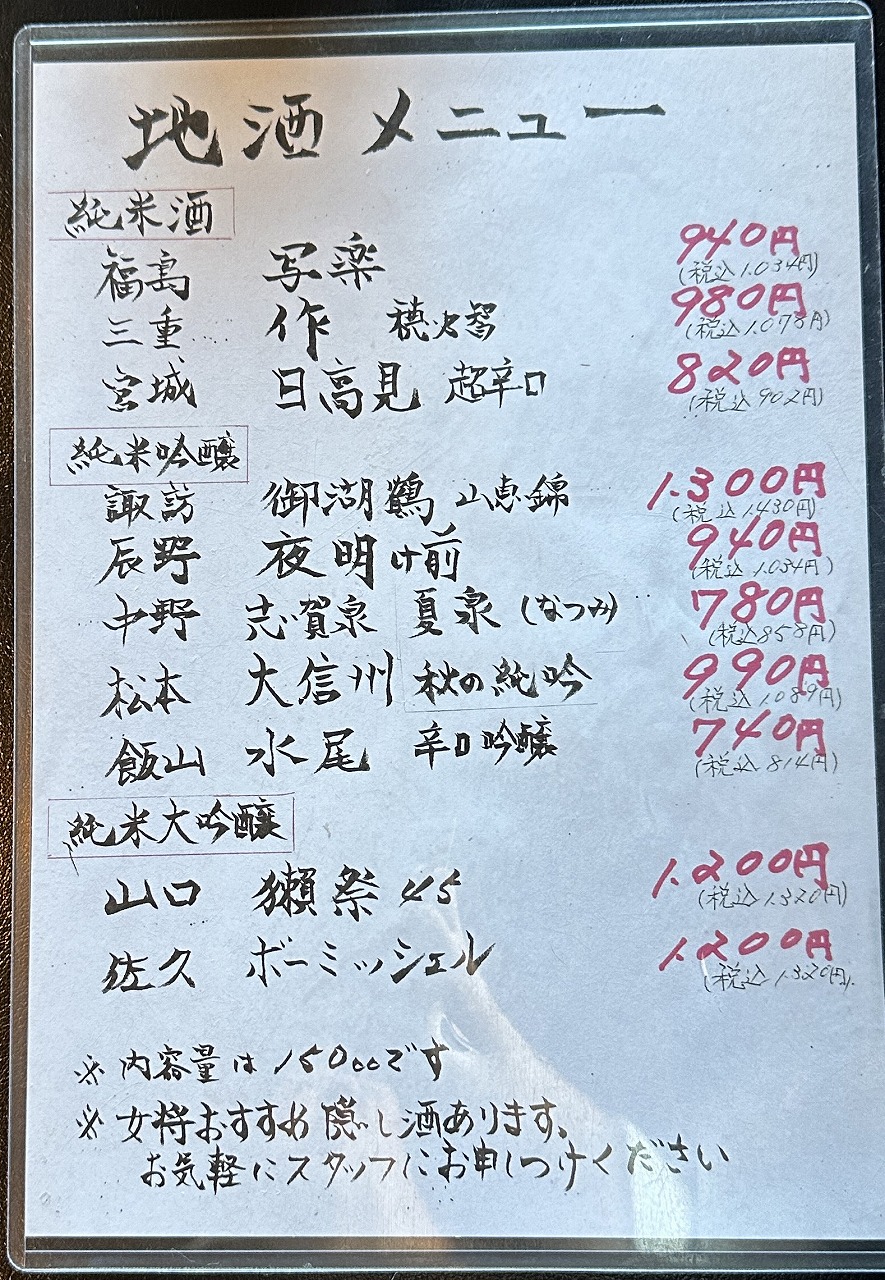 地酒メニュー
純米酒
福島 写楽 940円
(税込1.034円)
三重 作 穂乃智 980円
(税込1.078円)
宮城 日高見 超辛口 820円
(税込902円)
純米吟醸
諏訪 御湖鶴 山恵錦 1.300円
(税込1.430円)
辰野 夜明け前 940円
(税込1.034円)
中野 志賀泉 夏泉(なつみ) 780円
(税込858円)
松本 大信州 秋の純吟 990円
(税込1.089円)
飯山 水尾 辛口吟醸 740円
(税込814円)
純米大吟醸
山口 獺祭45 1.200円
(税込1.320円)
佐久 ボーミッシェル 1.200円
(税込1.320円)
※内容量は150ccです
※女将おすすめ隠し酒あります、
お気軽にスタッフにお申しつけください